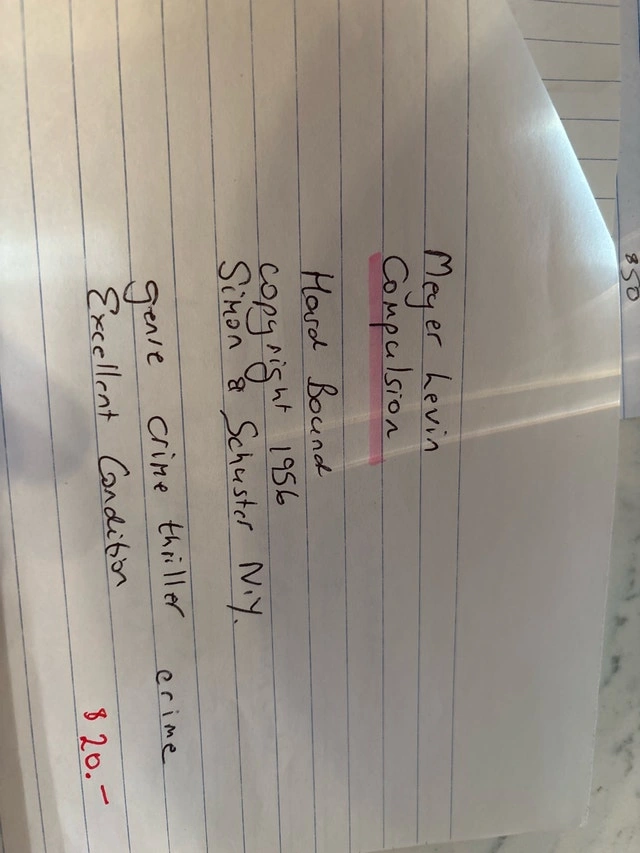 Meyer Levin
Compulsion
Hard Bound
Copyright 1956
Simon & Schuster N.Y.
genre crime thriller crime
Excellent Condition $20.-
850